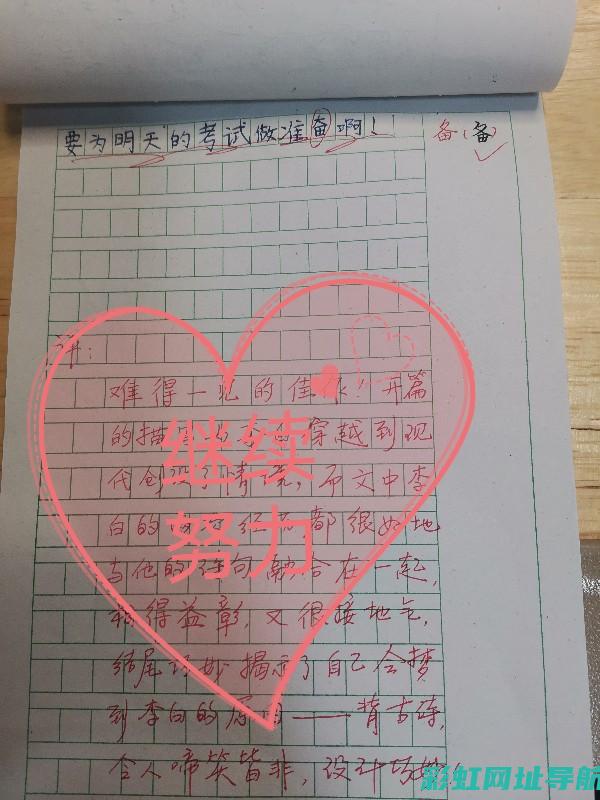 要为明天的考试做准奋啊！
备(备)
评：
难得一见的佳作！开篇
的描写为李白穿越到现
代创设了情境，而文中李
白的 都很好地
与他的诗句融合在一起，
相得益彰，又很接地气，
结尾巧妙揭示了自己会梦
到李白的原因——背古诗，
令人啼笑皆非，设计巧妙！
继续
努力
彩虹网址导航